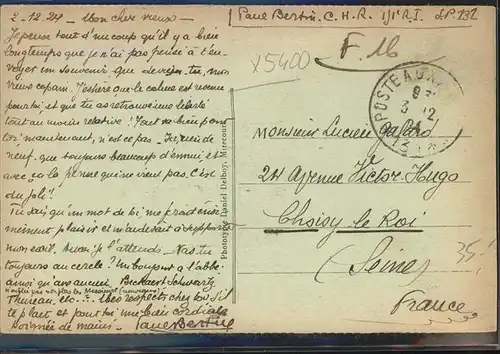 2-12.24 - Mon cher vieux -
Je pense tout d'un coup qu'il y a bien
longtemps que je n'ai pas pensé à t'en-
voyer un souvenir. Que deviens-tu, mon
vieux copain. J'espère que le calme est revenu
pour toi et que tu as retrouvé une liberté
tout au moins relative! Tout va bien pour
toi maintenant, n'est-ce pas - Ici, rien de
neuf. que toujours beaucoup d'ennui, et
avec ça la pense qui ne vient pas. C'est
du joli!
Tu sais qu'un mot de toi me
plaisir et m'aiderait à supporter
mon exil. Aussi je l'attends - Vas-tu
toujours au cercle? Un bonjour à l'abbé
ainsi qu'aux anciens Beckaert Schwartz
Thureau. etc... Mes respects chez toi s'il
te plaît et pour toi une bien cordiale
poignée de mains. Paul Bertin
Paul Bertin. C.H.R. 1/1er R.I. SP 132
F. M
x5400
POSTE AUX
3 12
Monsieur Lucien
24 Avenue Victor-Hugo
Choisy le Roi
(Seine)
France
35
Phototypie Daniel Delboy, Mirecourt